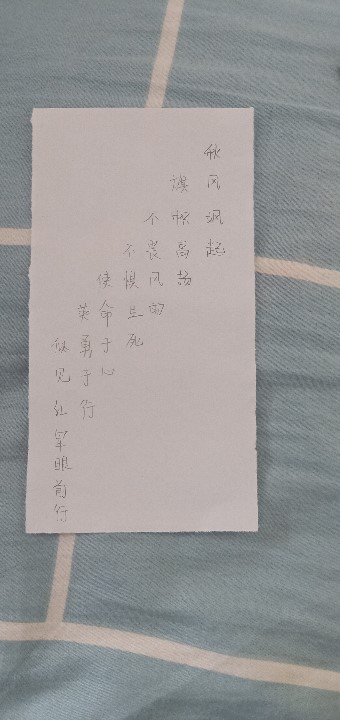 秋风飒起
旗帜高扬
不畏风的
不惧生死
使命于心
英勇于行
似见红军眼前行